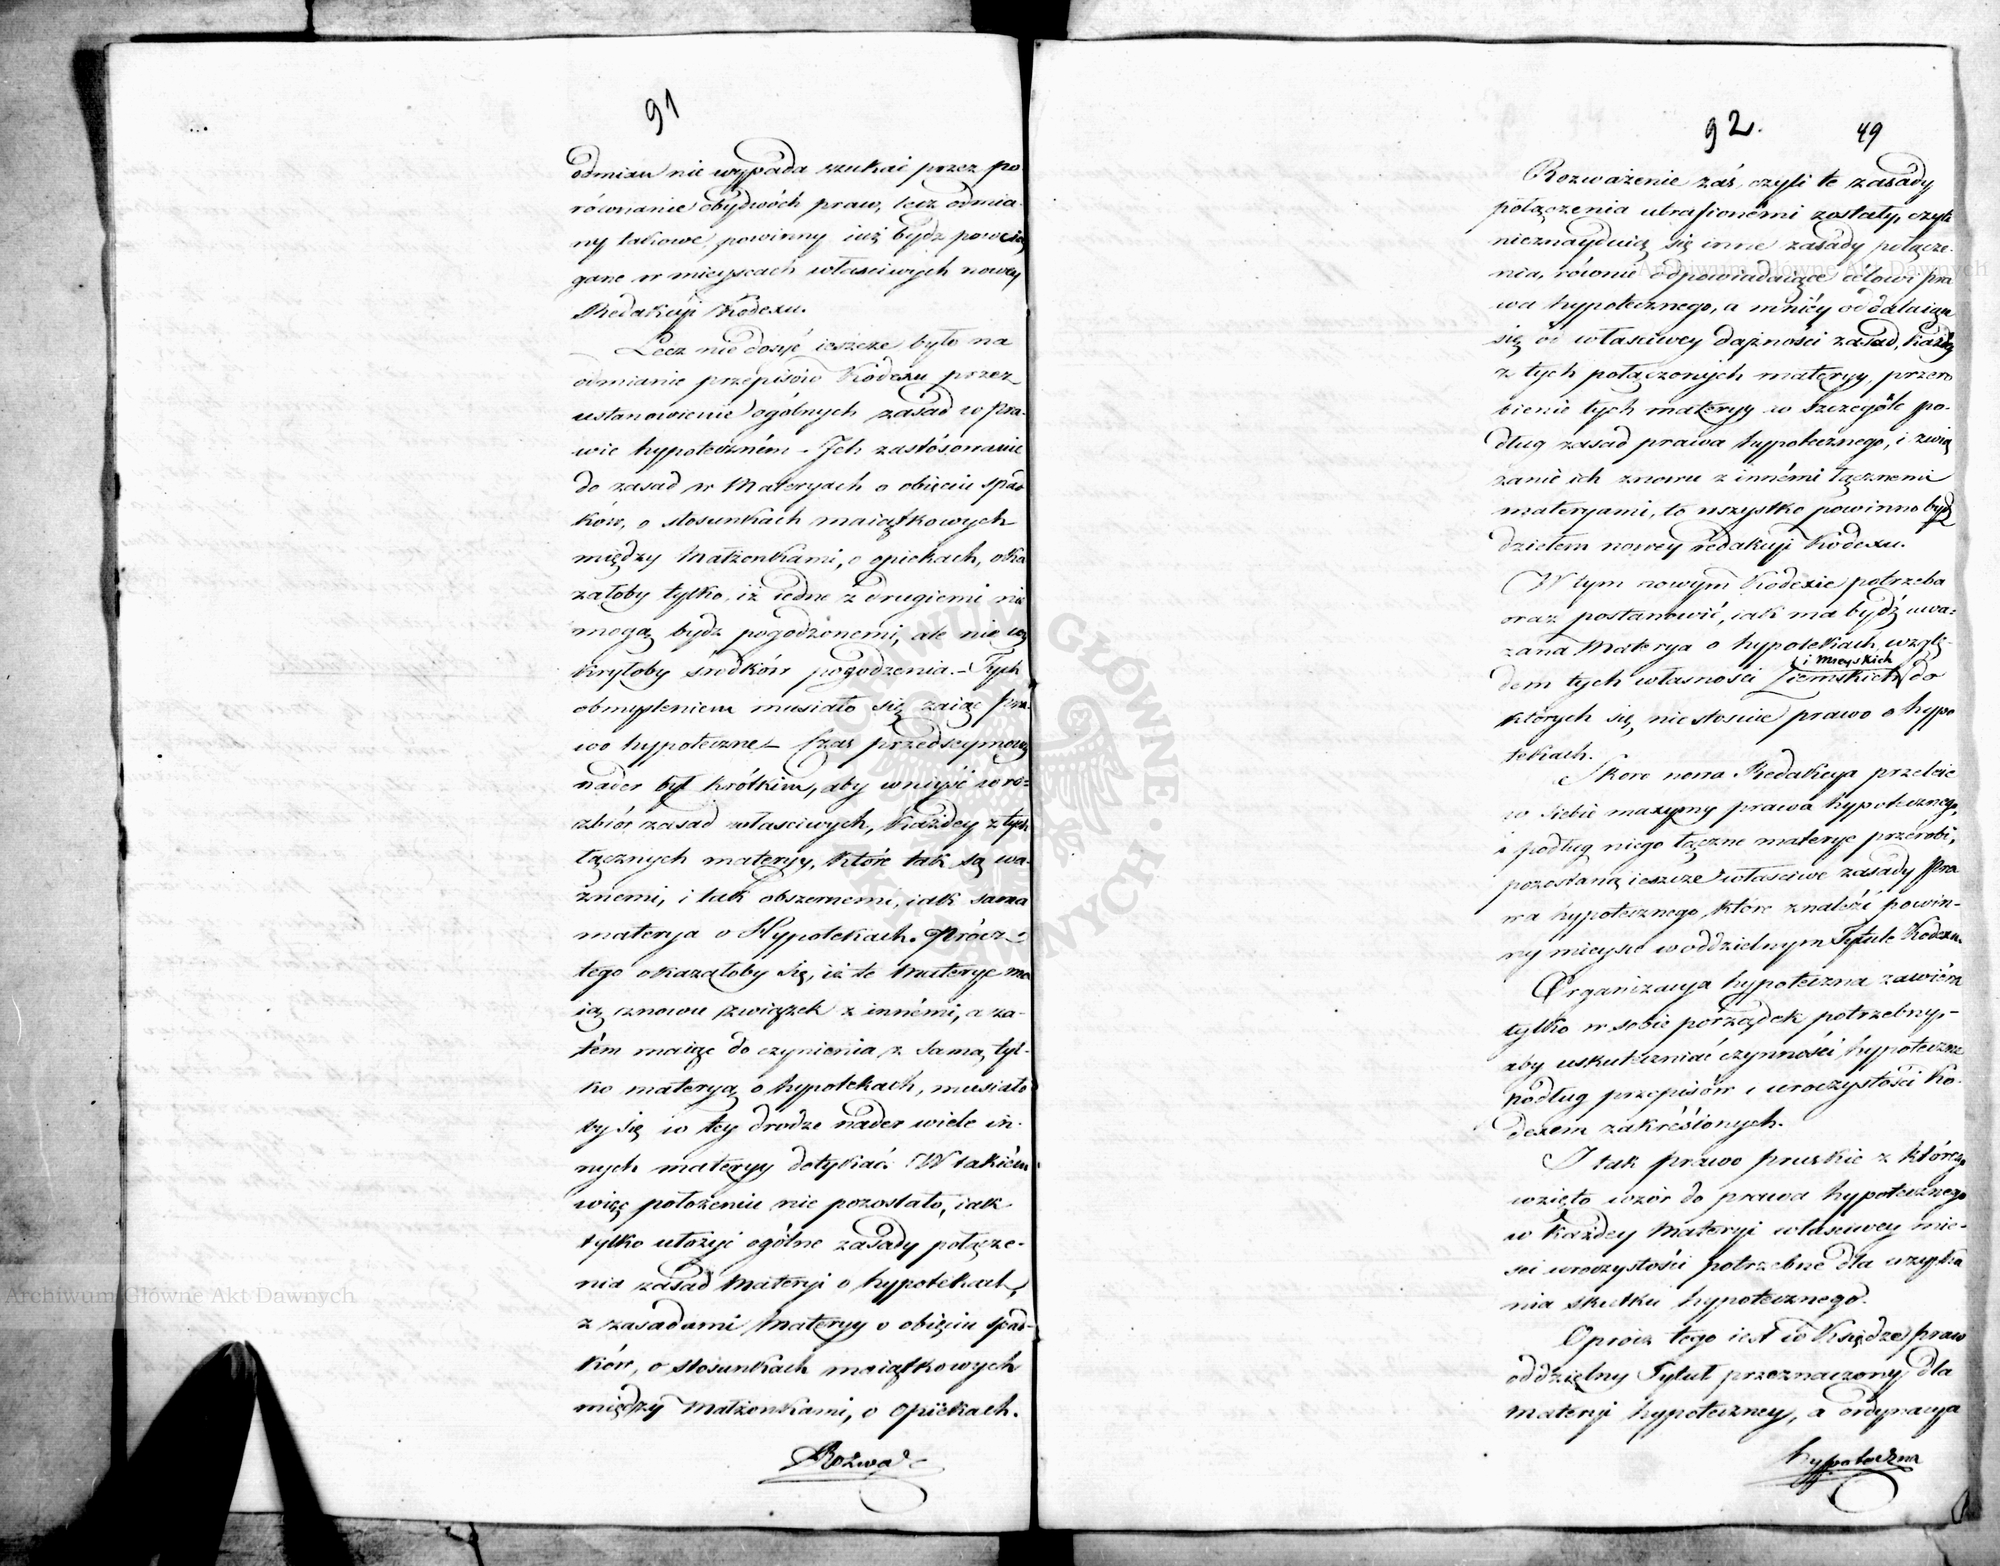 91
odmian nie wypada szukać przez po-
równanie obydwóch praw, lecz odmia-
ny takowe powinny iuż bydź powcią
gane w mieyscach właściwych nowey
Redakcyi Kodexu.
Lecz nie dosyć ieszcze było na
odmianie przepisów Kodexu przez
ustanowienie ogólnych zasad w pra-
wie hypoteczném - Ich zastósowanie
do zasad w Materyach o obięciu spad
ków, o stosunkach maiątkowych
między Małżonkami, o opiekach, oka
załoby tylko, iż iedne z drugiemi nie
mogą bydź pogodzonemi, ale nie od
kryłoby środków pogodzenia. - Tych
obmyśleniem musiało się zaiąć pra
wo hypoteczne - Czas przedseymowy
nader był krótkim, aby wniyść w ro-
zbiór zasad właściwych, każdey z tych
łącznych materyy, które tak są wa-
żnemi, i tak obszernemi, iak sama
materya o Hypotekach. Prócz
tego okazałoby się, iż te Materye ma
ią znowu związek z innémi, a za-
tém maiąc do czynienia z samą tyl-
ko materyą o hypotekach, musiało
by się w tey drodze nader wiele in-
nych materyy dotykać. W takiém
więc położeniu nie pozostało, iak
tylko ułożyć ogólne zasady połącze-
nia zasad Materyi o hypotekach,
z zasadami Materyy o obięciu spad-
ków, o stosunkach maiątkowych
między Małżonkami, o Opiekach.
Rozwaź
92. 49
Rozważenie zaś, czyli te zasady
połączenia utrafionémi zostały, czyli
nieznayduią się inne zasady połącze-
nia, równie odpowiadaiące celowi pra
wa hypotecznego, a mniéy oddalaiące
się od właściwey dążności zasad, każdey
z tych połączonych materyy, przero
bienie tych materyy w szczególe po-
dług zasad prawa hypotecznego, i zwią
zanie ich znowu z innémi łącznemi
materyami, to wszystko powinno bydź
dziełem nowey redakcyi Kodexu.
W tym nowym Kodexie potrzeba
oraz postanowić, iak ma bydź uwa-
żana Materya o hypotekach wzglę-
dem tych własności Ziemskich i Mieyskich do
których się nie stosuie prawo o hypo
tekach.
Skoro nowa Redakcya przeleie
w siebie maxymy prawa hypotecznego,
i podług niego łączne materye przerobi,
pozostaną ieszcze właściwe zasady Pra
wa hypotecznego, które znaleźć powin-
ny mieysce w oddzielnym Tytule Kodexu.
Organizacya hypoteczna zawiéra
tylko w sobie porządek potrzebny,
aby uskuteczniać czynności hypoteczne
podług przepisów i uroczystości Ko-
dexem zakréślonych.
I tak prawo pruskie z którego
wzięto wzór do prawa hypotecznego
w każdey Materyi właściwey mie-
ści uroczystości potrzebne dla uzyska
nia skutku hypotecznego.
Oprócz tego iest w Księdze praw
oddzielny Tytuł przeznaczony dla
materyi hypoteczney, a ordynacya
hypoteczna
Archiwum Główne Akt Dawnych
Archiwum Główne Akt Dawnych
ARCHIWUM GŁÓWNE AKT DAWNYCH